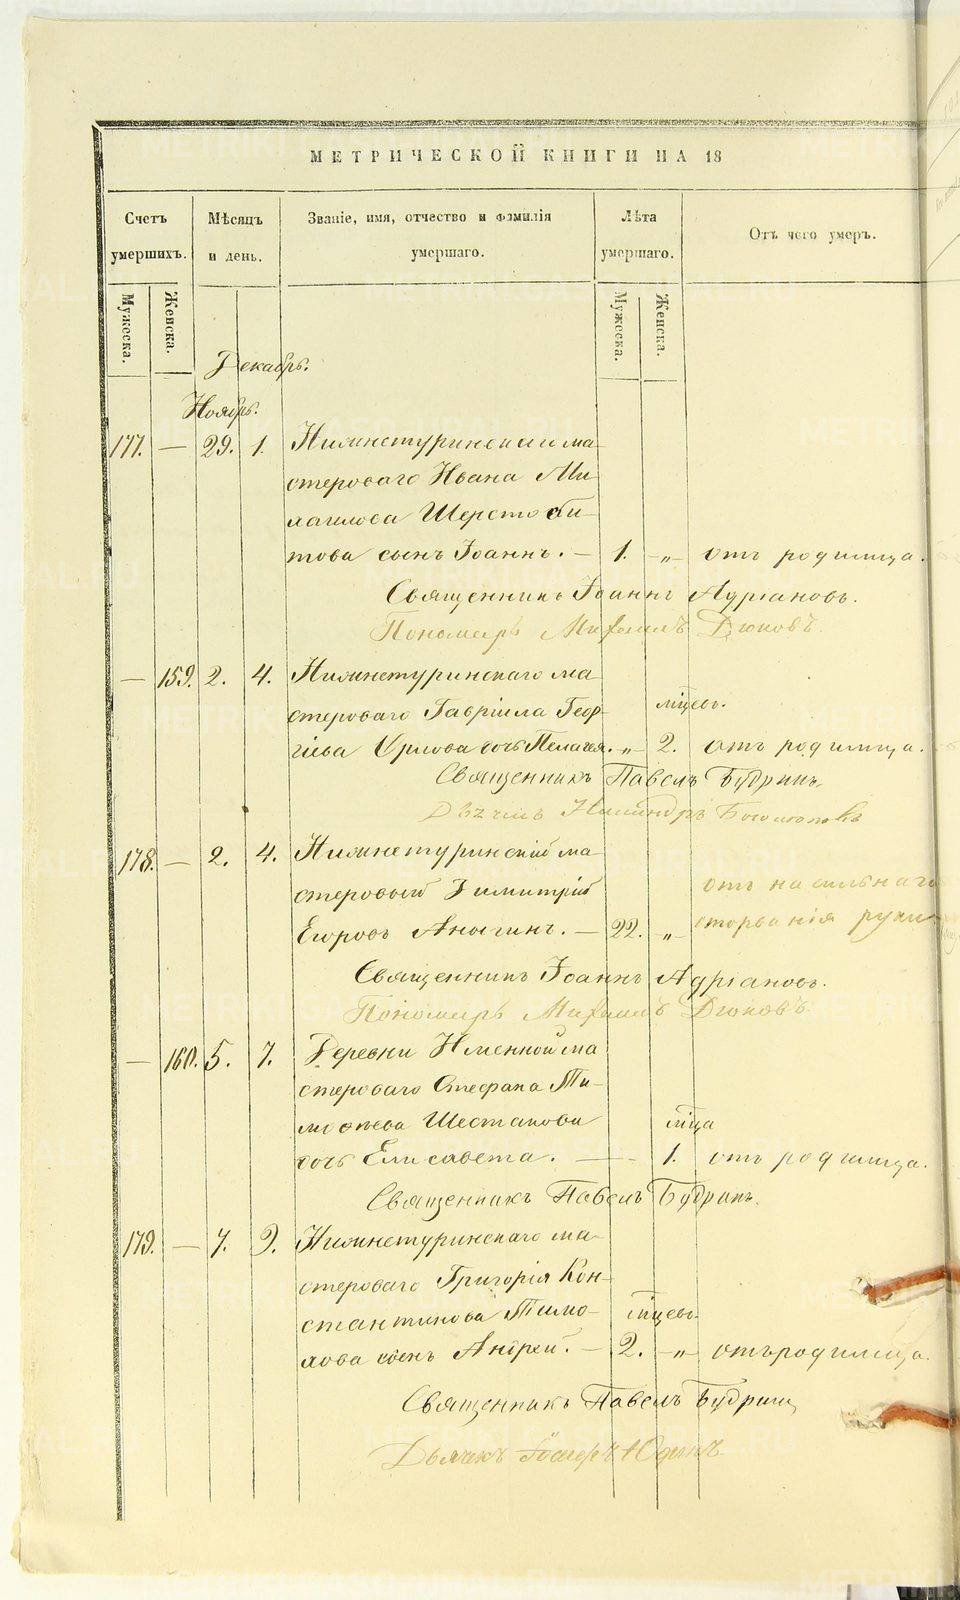 МЕТРИЧЕСКОЙ КНИГИ НА 18
Счетъ умершихъ.
Мѣсяцъ и день.
Званіе, имя, отчество и фамилія умершаго.
Лѣта умершаго.
Отъ чего умеръ.
Мужеска.
Женска.
Мужеска.
Женска.
Декабрь.
Ноябрь.
177. — 29. 1. Нижнетуринскаго ма-
стероваго Ивана Ми-
хаилова Шерстоби-
това сынъ Іоаннъ. — 1. — „ — отъ родимца.
Священникъ Іоаннъ Адріановъ.
Пономарь Михаилъ Дюковъ.
— 159. 2. 4. Нижнетуринскаго ма-
стероваго Гавріила Геор- мѣцевъ.
гіева Орлова дочь Пелагея. „ — 2. отъ родимца.
Священникъ Павелъ Будринъ.
178. — 2. 4. Нижнетуринскій ма-
стеровый Димитрій отъ насильнаго
Егоровъ — 22. „ оторванія руки
Священникъ Іоаннъ Адріановъ.
Пономарь Михаилъ Дюковъ.
— 160. 5. 7. Деревни Именной ма-
стероваго Стефана Ти-
моѳеева Шестакова мѣца
дочь Елисавета. — 1. отъ родимца.
Священникъ Павелъ Будринъ.
179. — 7. 9. Нижнетуринскаго ма-
стероваго Григорія Кон-
стантинова мѣцевъ.
сынъ Андрей. — 2. — „ отъ родимца.
Священникъ Павелъ Будринъ